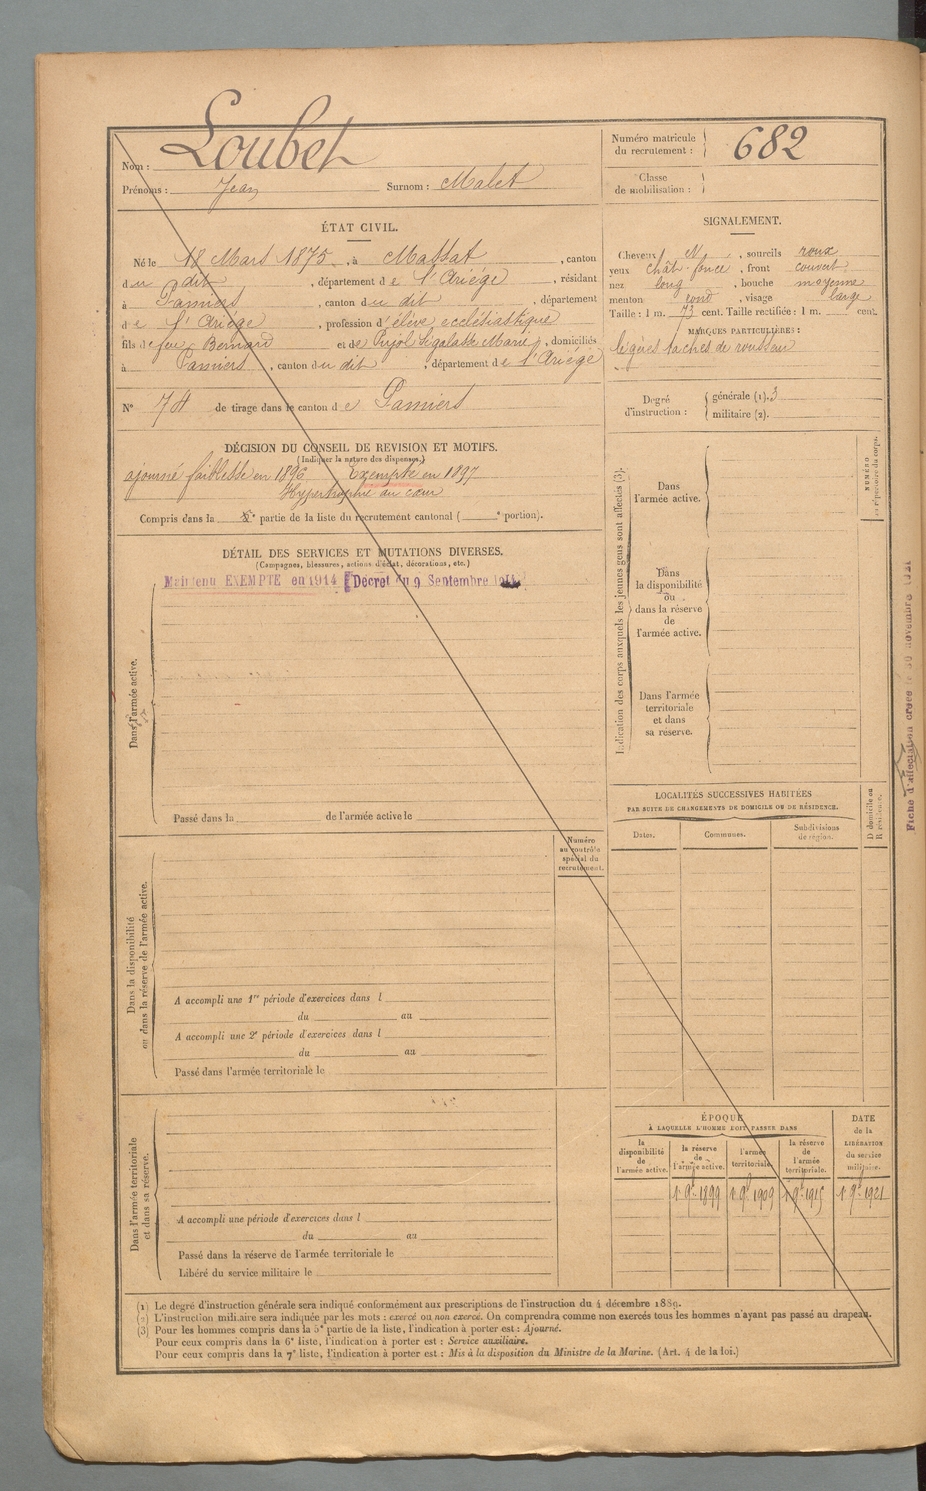 Nom : Loubet
Prénoms : Jean Surnom : Malet
Numéro matricule du recrutement : 682
Classe de mobilisation :
ÉTAT CIVIL.
Né le 18 Mars 1875, à Massat, canton
du dit, département de l'Ariége, résidant
à Pamiers, canton du dit, département
de l'Ariége, profession d'élève ecclésiastique
fils de feu Bernard et de Pujol Ségalasse Marie, domiciliés
à Pamiers, canton du dit, département de l'Ariége
N° 74 de tirage dans le canton de Pamiers
SIGNALEMENT.
Cheveux N, sourcils roux
yeux chât. foncé, front couvert
nez long, bouche moyenne
menton rond, visage large
Taille : 1 m. 73 cent. Taille rectifiée : 1 m. cent.
MARQUES PARTICULIÈRES :
légères taches de rousseur
Degré d'instruction : générale (1). 3
militaire (2).
DÉCISION DU CONSEIL DE REVISION ET MOTIFS.
(Indiquer la nature des dispenses.)
ajourné faiblesse en 1896 Exempté en 1897
Hypertrophie du cœur
Compris dans la e partie de la liste du recrutement cantonal ( e portion).
DÉTAIL DES SERVICES ET MUTATIONS DIVERSES.
(Campagnes, blessures, actions d'éclat, décorations, etc.)
Maintenu EXEMPTÉ en 1914 (Décret du 9 Septembre 1914)
Dans l'armée active.
Passé dans la de l'armée active le
Dans la disponibilité ou dans la réserve de l'armée active.
Numéro au contrôle spécial du recrutement.
A accompli une 1re période d'exercices dans l
du au
A accompli une 2e période d'exercices dans l
du au
Passé dans l'armée territoriale le
Dans l'armée territoriale et dans sa réserve.
A accompli une période d'exercices dans l
du au
Passé dans la réserve de l'armée territoriale le
Libéré du service militaire le
Indication des corps auxquels les jeunes gens sont affectés (3).
NUMÉRO au répertoire du corps.
Dans l'armée active.
Dans la disponibilité ou dans la réserve de l'armée active.
Dans l'armée territoriale et dans sa réserve.
LOCALITÉS SUCCESSIVES HABITÉES
PAR SUITE DE CHANGEMENTS DE DOMICILE OU DE RÉSIDENCE.
Dates. Communes. Subdivisions de région. D domicile ou R résidence.
ÉPOQUE
À LAQUELLE L'HOMME DOIT PASSER DANS
la disponibilité de l'armée active. la réserve de l'armée active. l'armée territoriale. la réserve de l'armée territoriale. DATE de la LIBÉRATION du service militaire.
1er 9bre 1899 1er 9bre 1909 1er 9bre 1915 1er 9bre 1921
(1) Le degré d'instruction générale sera indiqué conformément aux prescriptions de l'instruction du 4 décembre 1889.
(2) L'instruction militaire sera indiquée par les mots : exercé ou non exercé. On comprendra comme non exercés tous les hommes n'ayant pas passé au drapeau.
(3) Pour les hommes compris dans la 5e partie de la liste, l'indication à porter est : Ajourné.
Pour ceux compris dans la 6e liste, l'indication à porter est : Service auxiliaire.
Pour ceux compris dans la 7e liste, l'indication à porter est : Mis à la disposition du Ministre de la Marine. (Art. 4 de la loi.)
Fiche d'affectation créée le 30 novembre 1921